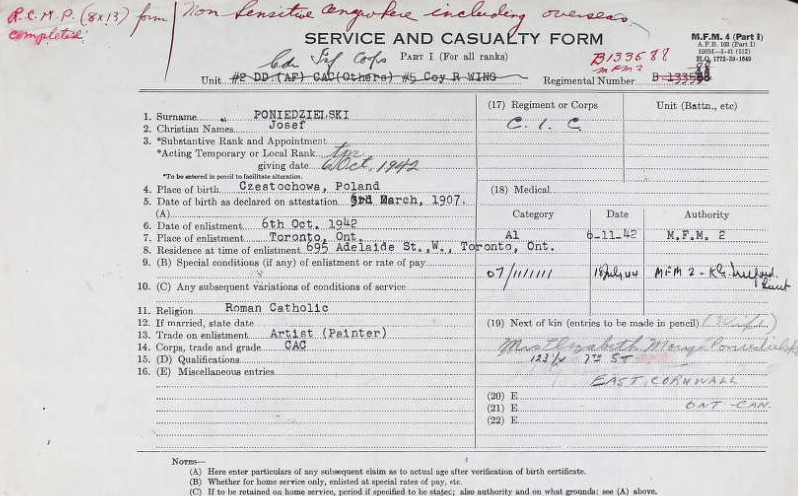 R.C.M.P. (8x13) form
completed
Non Sensitive anywhere including overseas.
SERVICE AND CASUALTY FORM
M.F.M. 4 (Part I)
A.F.B. 103 (Part I)
H.Q. 1772-39-1649
Part I (For all ranks)
B133588
MFM2
Cdn Inf Corps
Unit #2 DD (AF) CAC(Others) #5 Coy R WING
Regimental Number B 1335 88
1. Surname PONIEDZIELSKI
2. Christian Names Josef
3. *Substantive Rank and Appointment
*Acting Temporary or Local Rank
giving date 6 Oct, 1942
*To be entered in pencil to facilitate alteration.
4. Place of birth Czestochowa, Poland
5. Date of birth as declared on attestation 3rd March, 1907.
(A)
6. Date of enlistment 6th Oct. 1942
7. Place of enlistment Toronto, Ont.
8. Residence at time of enlistment 695 Adelaide St.,W., Toronto, Ont.
9. (B) Special conditions (if any) of enlistment or rate of pay
10. (C) Any subsequent variations of conditions of service
11. Religion Roman Catholic
12. If married, state date
13. Trade on enlistment Artist (Painter)
14. Corps, trade and grade CAC
15. (D) Qualifications
16. (E) Miscellaneous entries
(17) Regiment or Corps Unit (Battn., etc)
C. I. C.
(18) Medical
Category Date Authority
A1 6-11-42 M.F.M. 2
07/1111111 18 July 44 MFM 2 -
(19) Next of kin (entries to be made in pencil) (Wife)
Mrs Elizabeth Mary Poniedzielski
123½ 7th ST
EAST CORNWALL
(20) E
ONT - CAN.
(21) E
(22) E
Notes—
(A) Here enter particulars of any subsequent claim as to actual age after verification of birth certificate.
(B) Whether for home service only, enlisted at special rates of pay, etc.
(C) If to be retained on home service, period if specified to be stated; also authority and on what grounds: see (A) above.